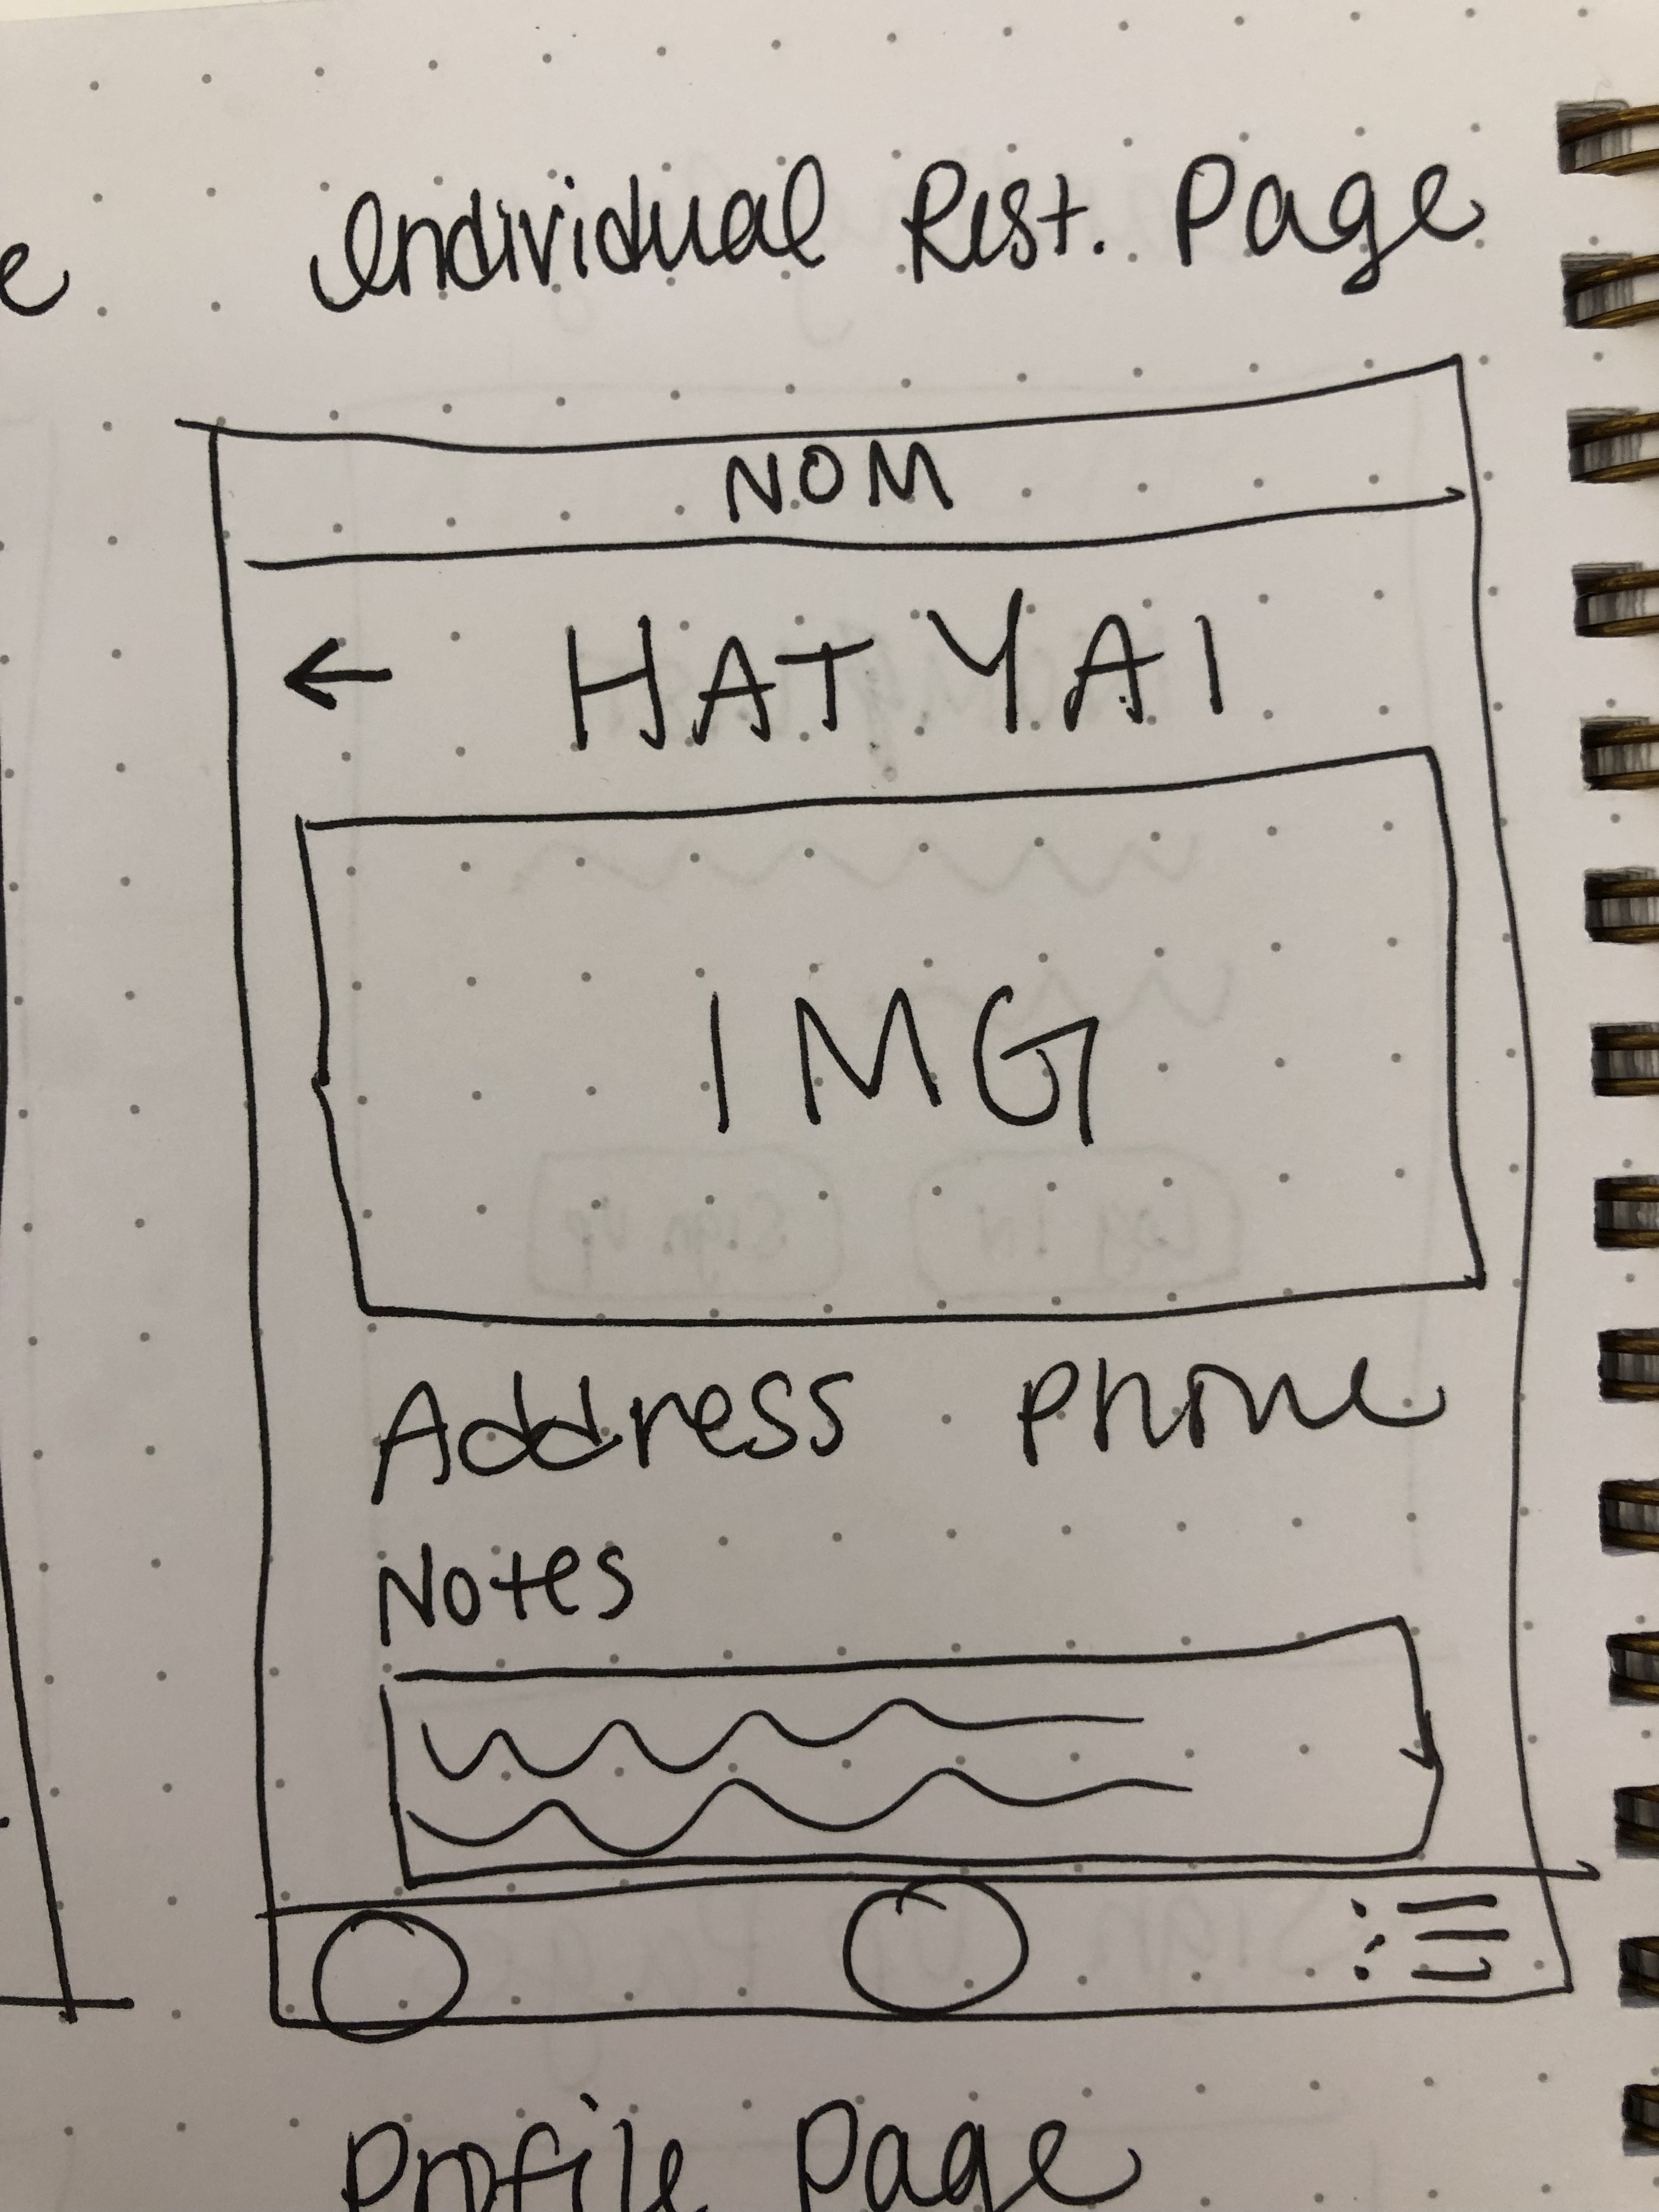 e
Individual Rest. Page
NOM
← HAT YAI
IMG
Address Phone
Notes
Profile Page